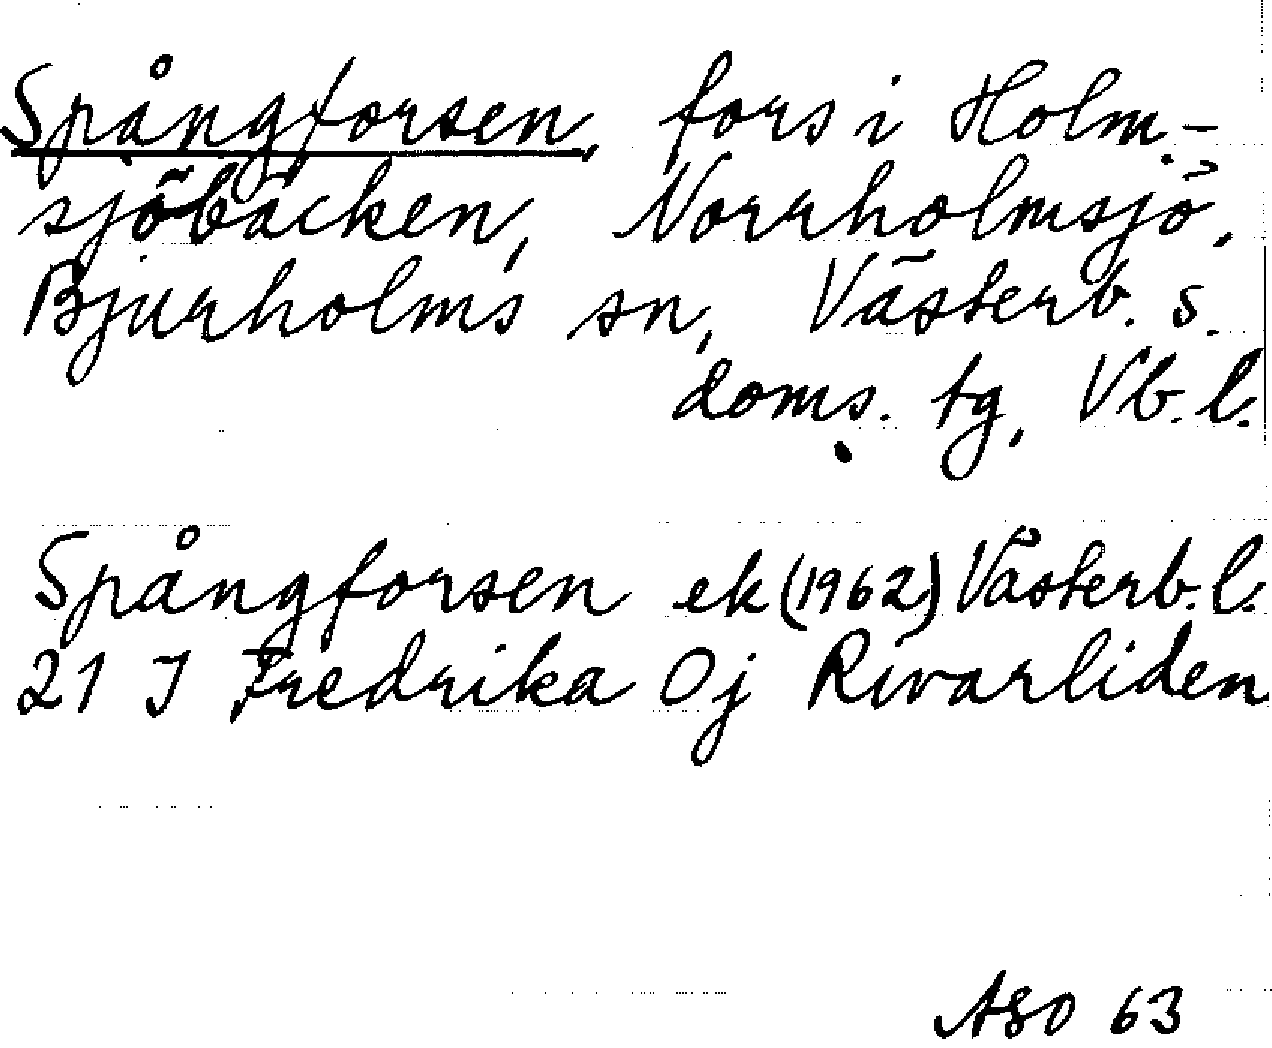 Spångforsen, fors i Holm-
sjöbäcken, Norrholmsjö,
Bjurholms sn, Västerb. s.
doms. tg, Vb. l.
Spångforsen ek (1962) Västerb. l.
21 J Fredrika 0j Rivarliden
ASO 63